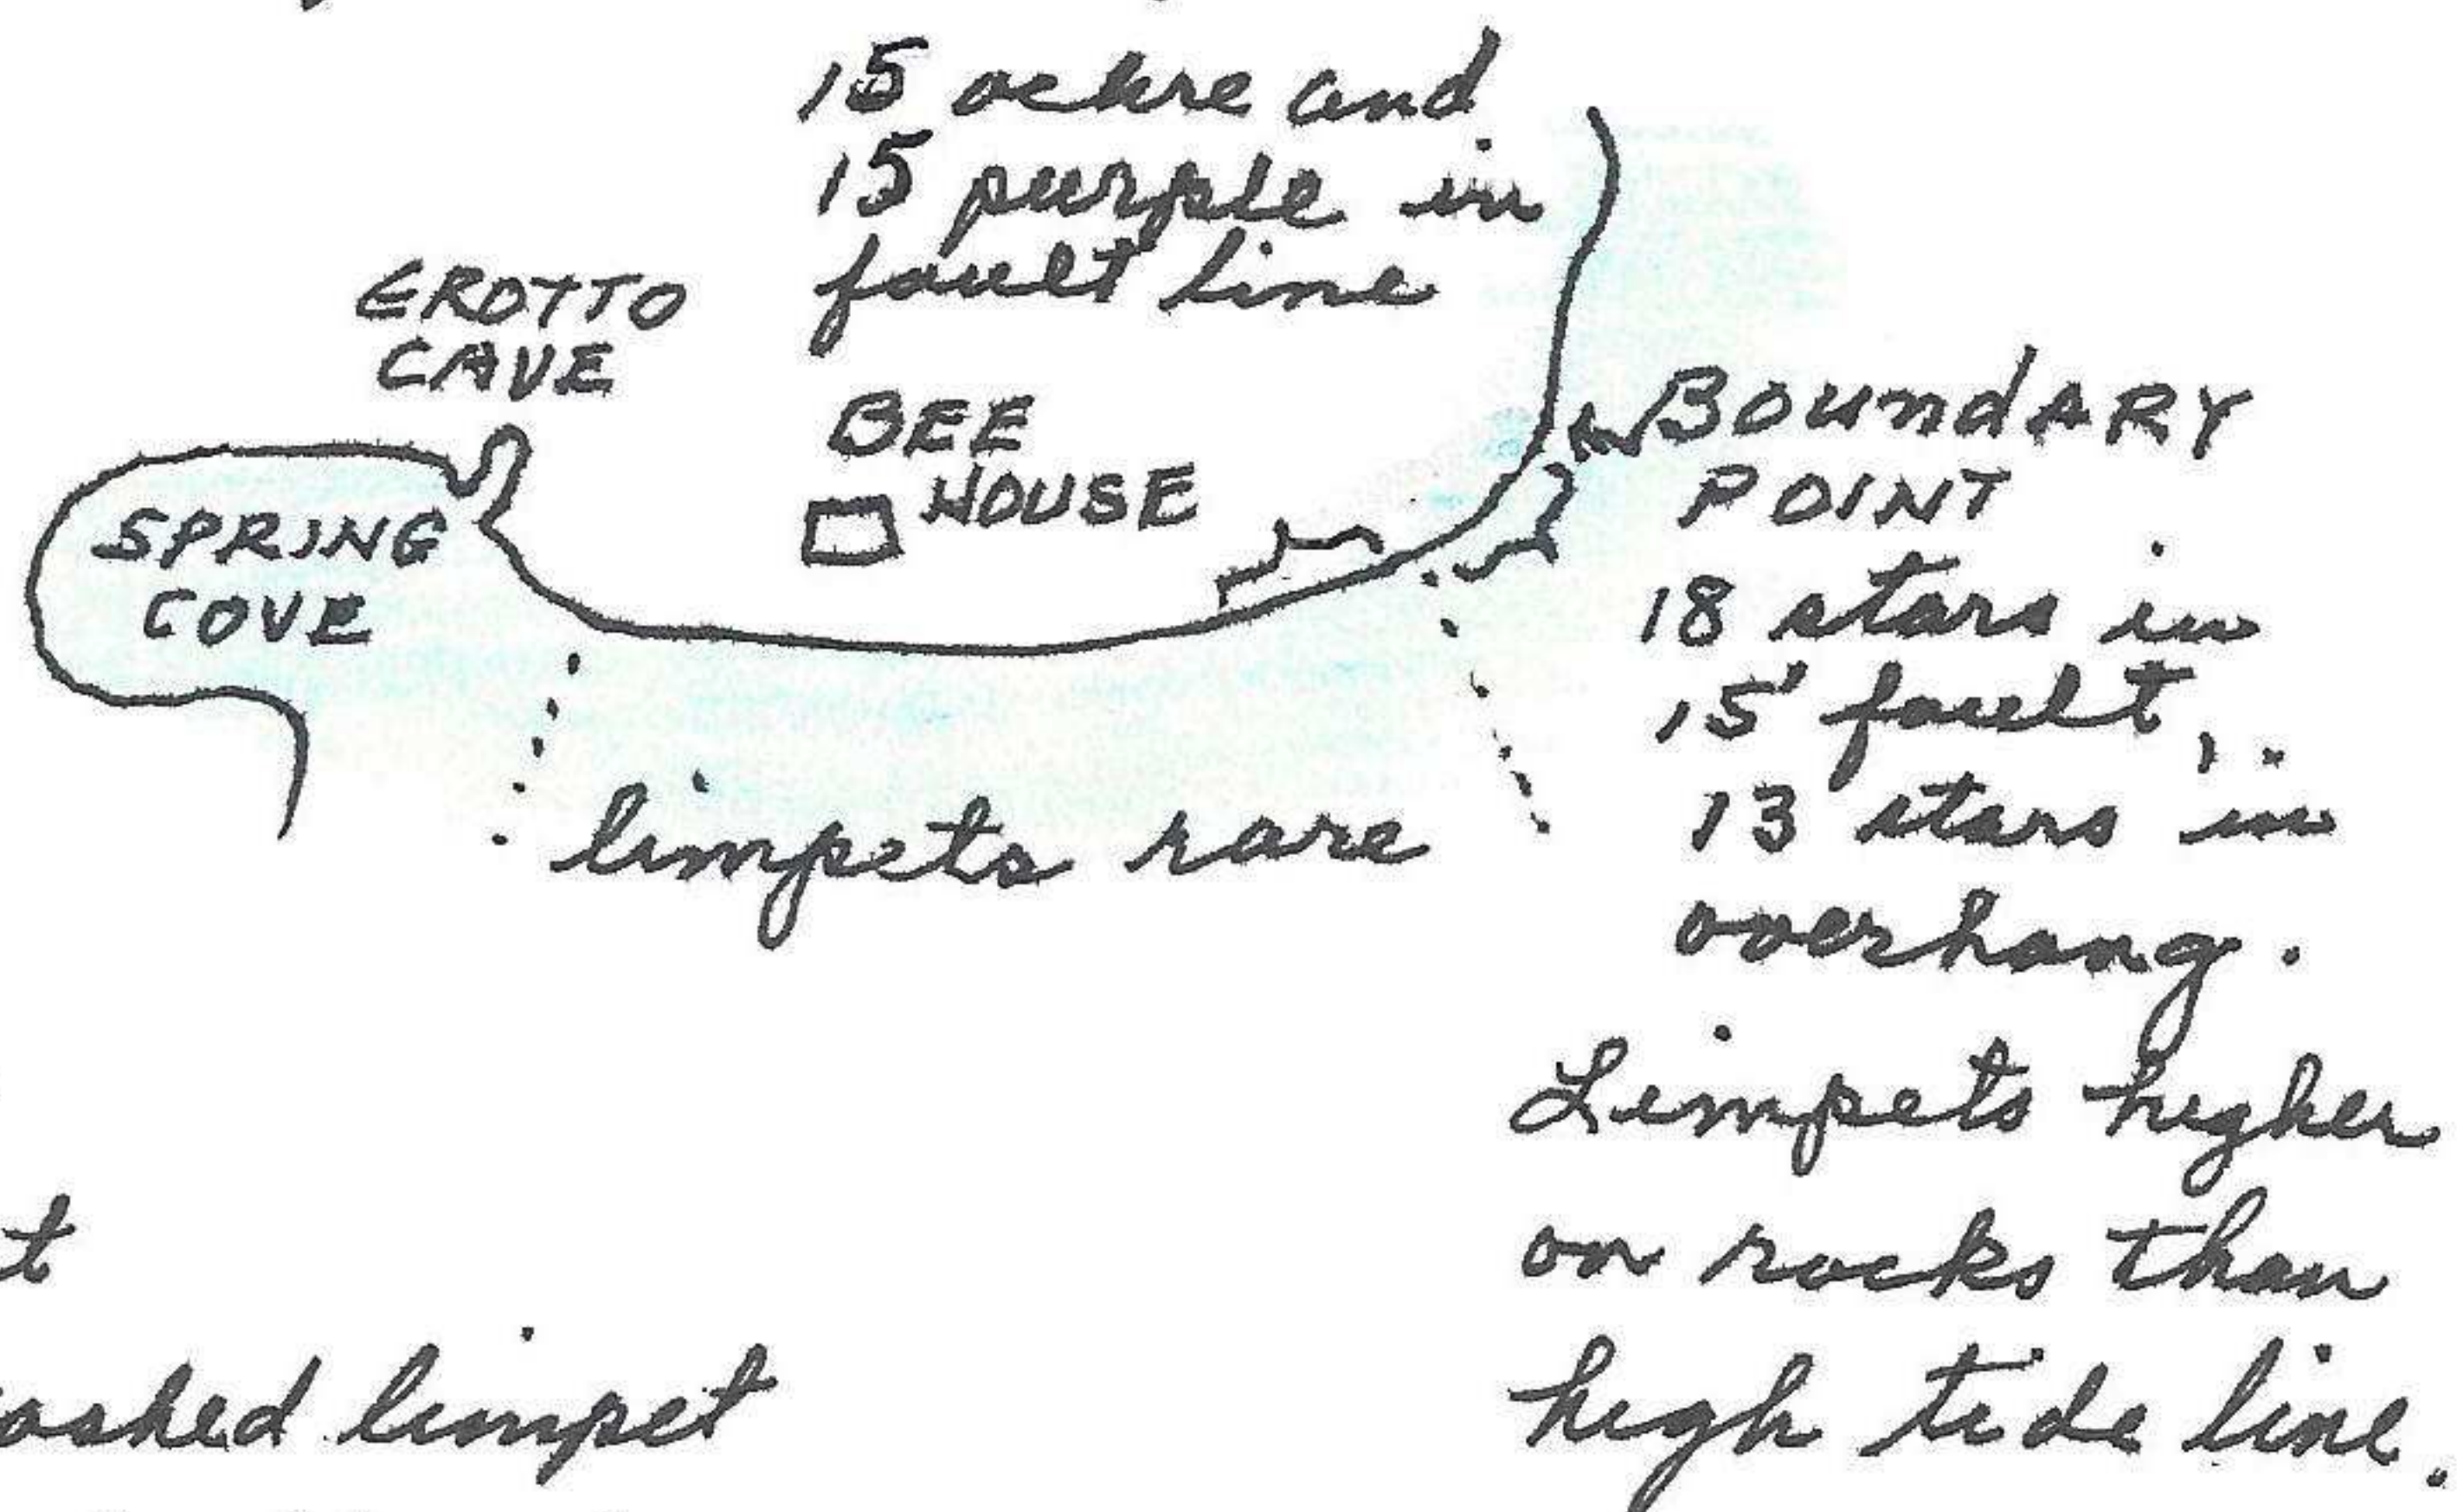 15 ochre and
15 purple in
fault line
GROTTO
CAVE
BEE
HOUSE
SPRING
COVE
BOUNDARY
POINT
18 stars in
15' fault,
13 stars in
overhang.
limpets rare
Limpets higher
on rocks than
high tide line.
limpet